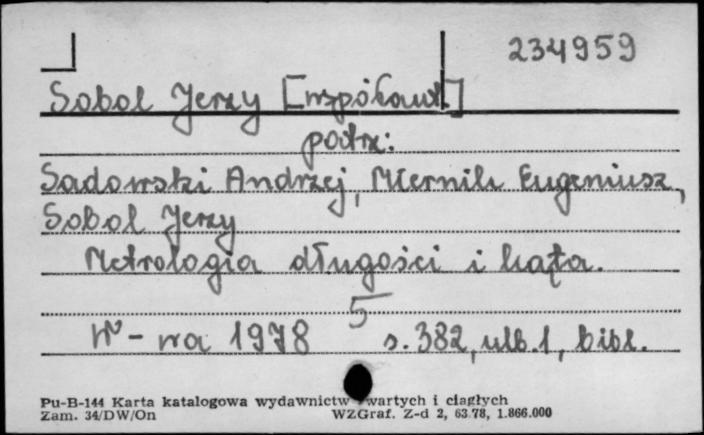 234959
Sobol Jerzy [współaut]
patrz:
Sadowski Andrzej, Miernik Eugeniusz,
Sobol Jerzy
Metrologia długości i kąta.
5
W-wa 1978 s. 382, nlb. 1, bibl.
Pu-B-144 Karta katalogowa wydawnictw wartych i ciągłych
Zam. 34/DW/On WZGraf. Z-d 2, 63.78, 1.866.000